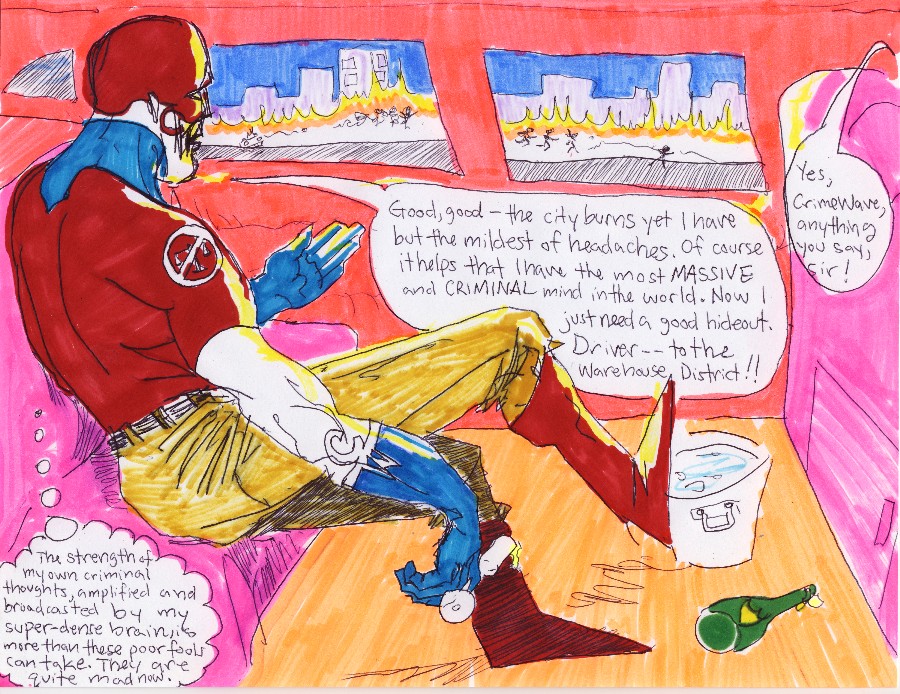 Good, good — the city burns yet I have
but the mildest of headaches. Of course
it helps that I have the most MASSIVE
and CRIMINAL mind in the world. Now I
just need a good hideout.
Driver -- to the
Warehouse District!!
Yes,
CrimeWave,
anything
you say,
sir!
The strength of
my own criminal
thoughts, amplified and
broadcasted by my
super-dense brain, is
more than these poor fools
can take. They are
quite mad now.